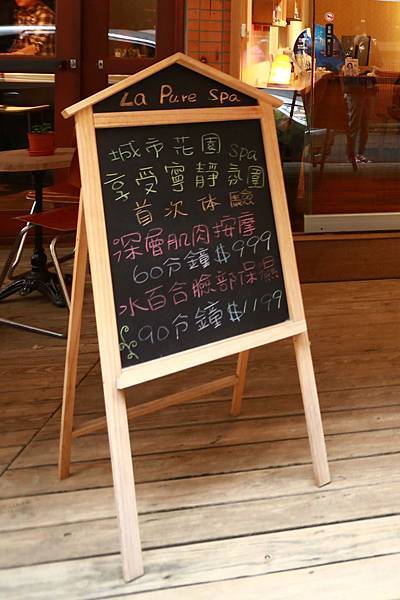 La Pure Spa
城市花園 spa
享受寧靜氛圍
首次体驗
深層肌肉按摩
60分鐘$999
水百合臉部保濕
90分鐘$1199